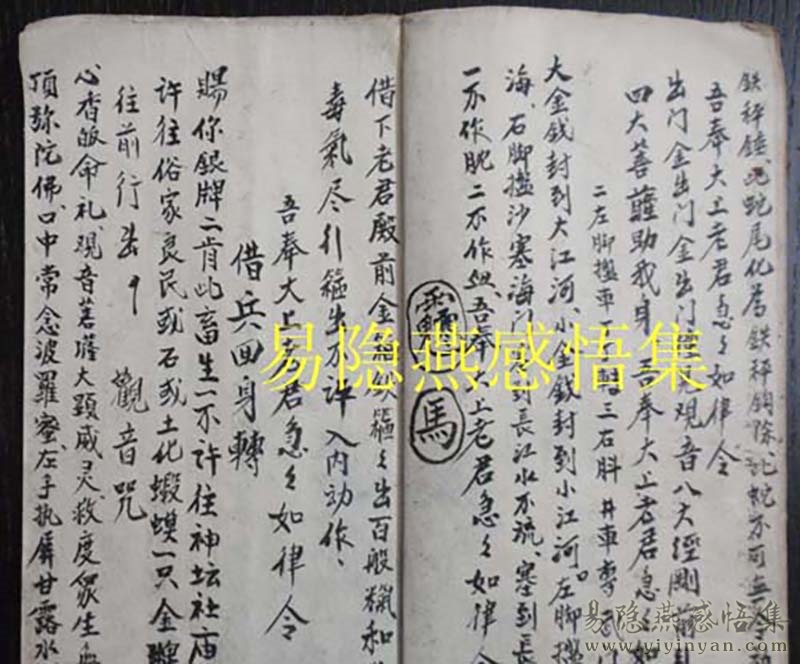 鉄秤錘、蛇尾化為鉄秤鈎
吾奉大上老君急々如律令
出门金出门金出门 观音八大經剛
四大菩薩助我身 吾奉大上老君急
二左脚搵車 三石斗 井車
大金銭封到大江河、小金銭封到小江河。左脚搵
海石脚搵沙塞海门 到長江水不流、塞到長
一不作脓二不作血、吾奉大上老君急々如律令
馬
借下老君殿前金 箍々出百般
毒氣尽引箍出不許入内动作、
吾奉大上老君急々如律令
借兵回身轉
賜你銀牌二肯此畜生一不許往神坛社庙
許往俗家良民或石或土化蝦蟆一只金牌
往前行去
觀音咒
心香皈命礼、观音菩薩大顕威灵、救度众生
頂弥陀佛、口中常念波羅蜜、左手执 甘露水
易隐燕感悟集
易隐燕感悟集
www.yiyinyan.com